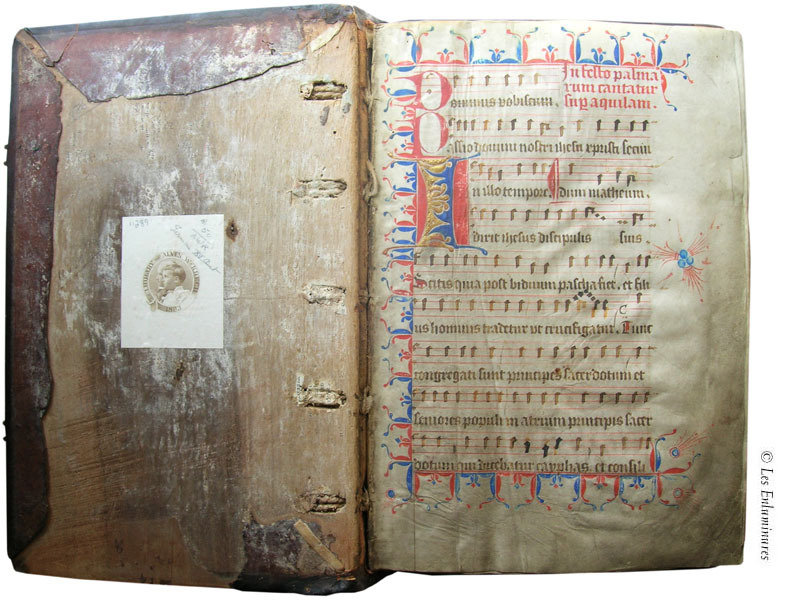 11289
ALVES
In festo palma
rum cantatur
sup aquilam.
Dominus vobiscum.
Passio domini nostri ihesu xpisti secun
In illo tempore. dum matheum.
dixit ihesus discipulis suis.
Scitis quia post biduum pascha fiet, et fili
us hominis tradetur vt crucifigatur. Tunc
congregati sunt principes sacerdotum et
seniores populi in atrium principis sacer
dotum qui dicebatur cayphas. et consili
© Les Enluminures